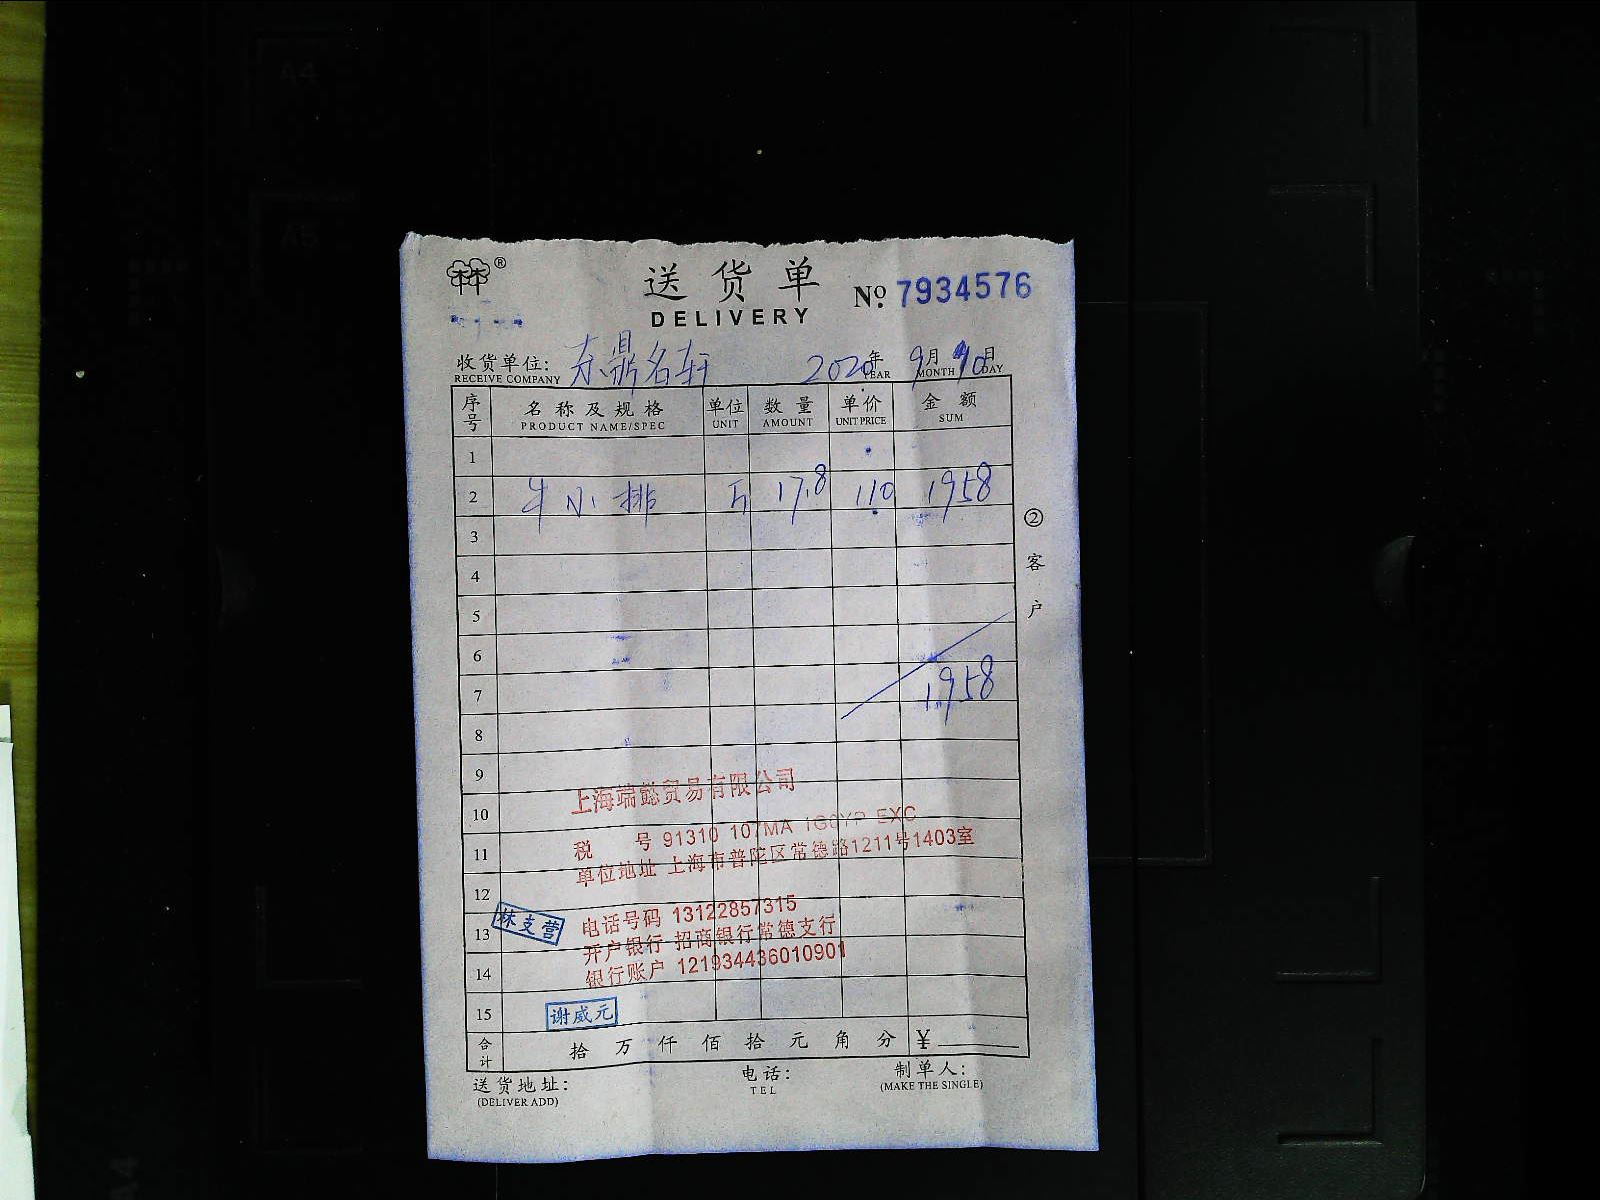 林 ®
送货单
DELIVERY
No. 7934576
收货单位: 东鼎名轩 2020年 9月 10日
RECEIVE COMPANY YEAR MONTH DAY
序号 名称及规格 单位 数量 单价 金额
PRODUCT NAME/SPEC UNIT AMOUNT UNIT PRICE SUM
1
2 牛小排 斤 17.8 110 1958
3
4
5
6
7 1958
8
9
上海端懿贸易有限公司
10
税 号 91310 107MA 1G0YP EXC
11
单位地址 上海市普陀区常德路1211号1403室
12
电话号码 13122857315
13 林支营
开户银行 招商银行常德支行
14 银行账户 121934436010901
15 谢威元
合计 拾 万 仟 佰 拾 元 角 分 ¥
送货地址: 电话: 制单人:
(DELIVER ADD) TEL (MAKE THE SINGLE)
② 客户
A4
A5